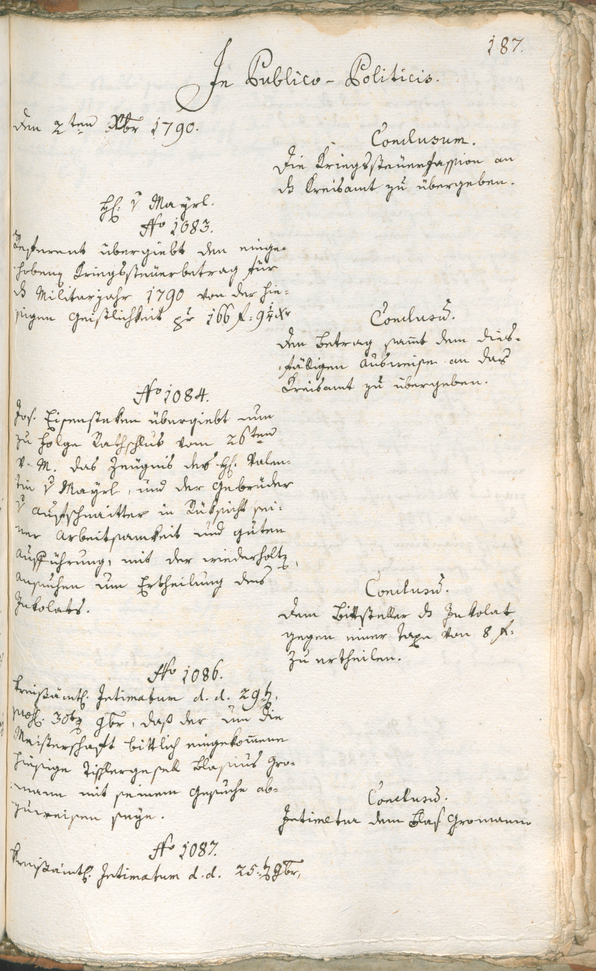 187.
In Publico-Politicis.
den 2ten Xbr 1790.
Conclusum.
Die Kriegssteuerfassion an
ds Kreisamt zu übergeben.
H: v Mayrl.
No 1083.
Referent übergiebt den einge-
hobenen Kriegssteuerbetrag für
ds Militarjahr 1790 von der hie-
sigen Geistlichkeit pr 166 f:
Conclusū.
Den Betrag samt dem dies-
fälligen Ausweise an das
Kreisamt zu übergeben.
No 1084.
Jos. Eisenstecken übergiebt nun
zu Folge Rathschlus vom 26ten
v. M. das Zeugnis des H: Valen-
tin v Mayrl, und der Gebrüder
v Aufschnaitter in Rücksicht sei-
ner Arbeitsamkeit und guten
Aufführung, mit der wiederholtz
Ansuchen um Ertheilung des
Inkolats.
Conclusū.
Dem Bittsteller ds Inkolat
gegen einer Taxe von 8 f:
zu ertheilen.
No 1086.
Kreisämtl. Intimatum d. d. 29t,
30t 9br, daß der um die
Meisterschaft bittlich eingekommene
hiesige Tischlergesell Blasius Gro-
mann mit seinem Gesuche ab-
zuweisen seye.
Conclusū.
Intimetur dem Blas Gromann
No 1087.
Kreisämtl. Intimatum d. d. 25t 9br,